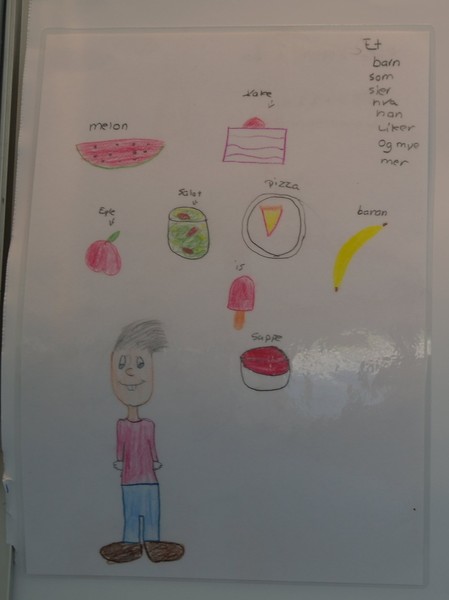 Et
barn
som
sier
hva
han
liker
og mye
mer
kake
melon
pizza
Salat
Eple
banan
is
Suppe